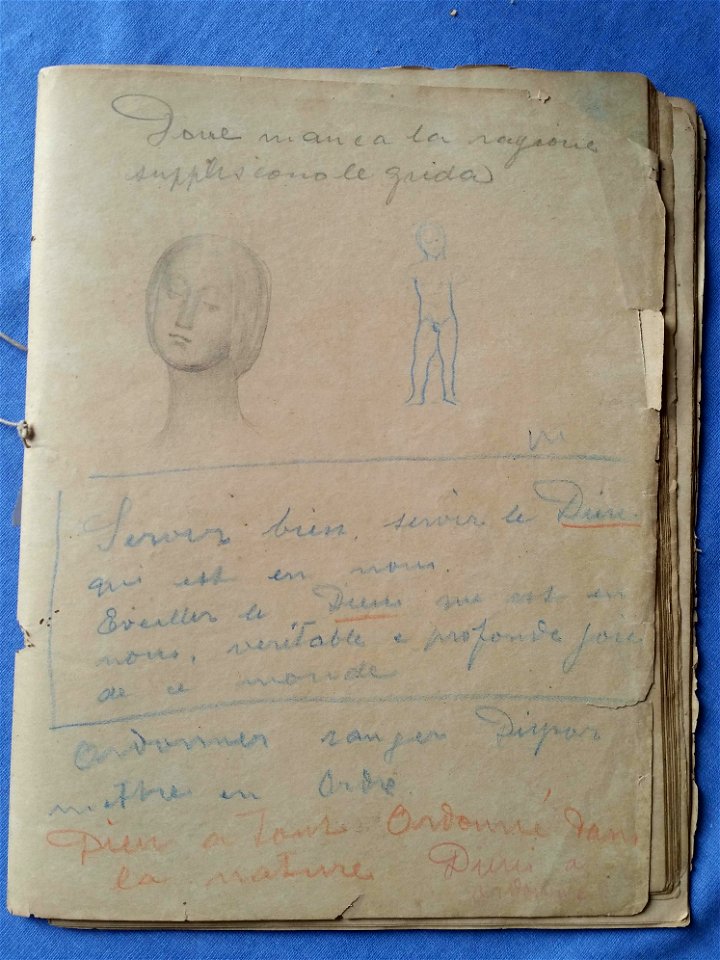 Dove manca la ragione
suppliscono le grida
Servir bien, servir le Dieu
qui est en nous.
Eveiller le Dieu qui est en
nous, veritable e profonde joie
de ce monde
Ordonner ranger Dispor
mettre en Ordre
Dieu a tout Ordonné dans
la nature Dieu a
ordonné